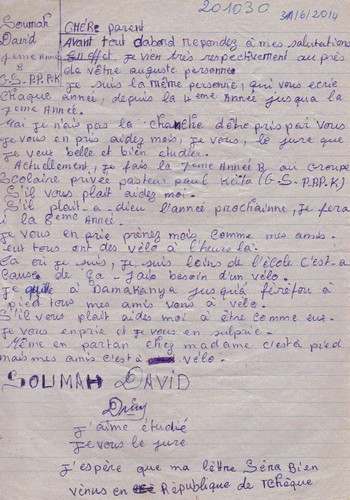 201030
31/6/2014
Soumah
David
7eme Année
B
G.S. P.P.P.K
CHERe parent
Avant tout dabord Repondez à mes salutations
En effet Je vien très respectivement au près
de vôtre auguste personne.
Je suis la même personne, qui vous ecrie
chaque année, depuis la 4eme Année jusqua la
7eme Année.
Mai Je n'ais pas la chanche d'être pris par vous
Je vous en pris aidez mois, Je vous, le jure que
Je veux belle et bien étudier.
Actuellement, Je fais la 7eme Année B au Groupe
Scolaire privée pasteur paul Keita (G.S. P.P.P.K)
S'il vous plait aidez moi.
S'il plait-a-dieu l'année prochainne, Je ferai
i la 8eme Année.
Je vous en prie prenez mois comme mes amis.
Seut tous ont des vélo à l'heure là.
La ori Je suis, Je suis loins de l'école c'est-a
Cause de ça - Jais besoin d'un vélo.
Je quitte à DamaKanya jusqu'à firifou à
pied tous mes amis vons à vélo.
S'il vous plait aides moi à être comme eux.
Je vous enprie et Je vous en suplrie.
Même en partan chez madame c'està pied
mais mes amis c'està vélo.
SOUMAH DAVID
J'aime étudié
Je vous le jure
J'espère que ma lêttre Séra Bien
venus en République de Tchèque